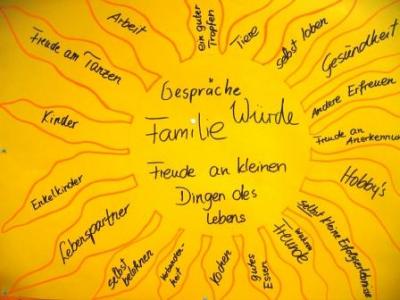 Arbeit
ein guter
Tropfen
Tiere
selbst loben
Gesundheit
Andere Erfreuen
Freude an
Anerkennung
Hobby's
selbst kleine Erfolgserlebnisse
Freunde
gutes
Essen
Kochen
Verbunden-
heit
selbst
belohnen
Lebenspartner
Enkelkinder
Kinder
Freude am Tanzen
Gespräche
Familie Würde
Freude an kleinen
Dingen des
Lebens